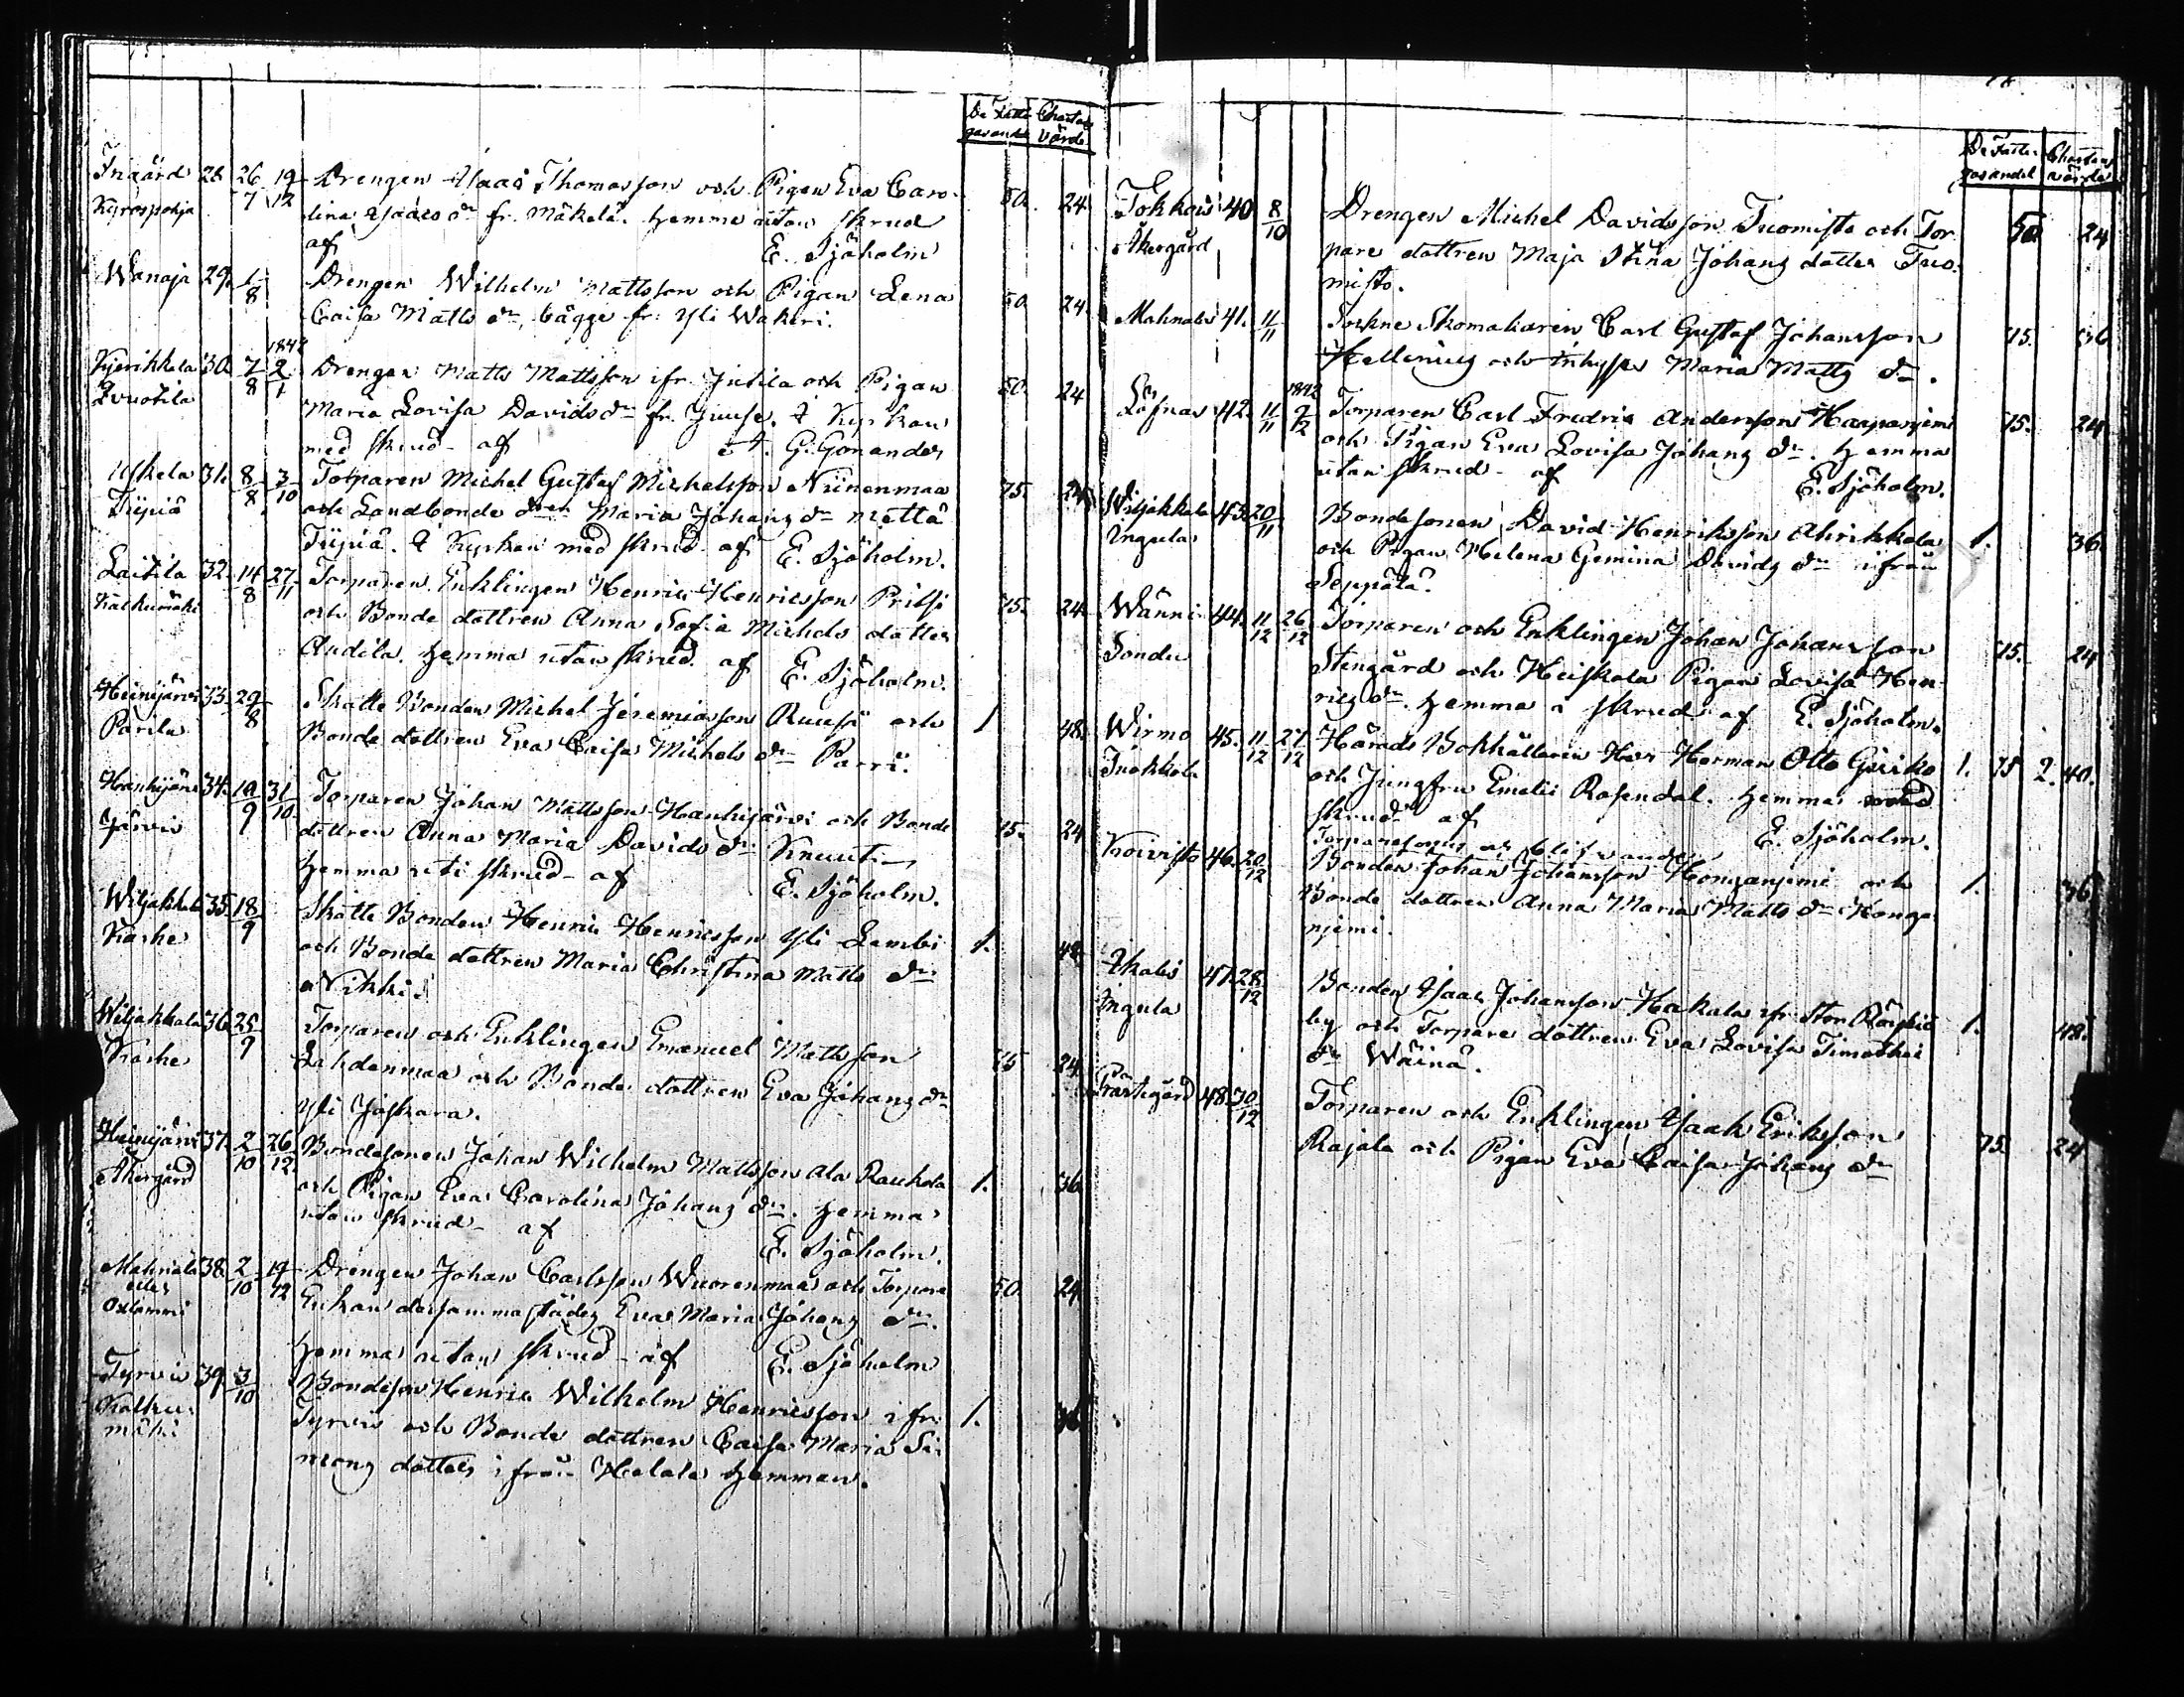 De Fatti- Chartae
gas andel värde
28. 26/7 19/12 Drengen Isaac Thomasson och Pigan Eva Caro- 50. 24
Kyröspohja lina Isaacs dr fr. Mäkelä. Hemma utan skrud
af E. Sjöholm
Wanaja 29. 1/8 Drengen Wilhelm Mattsson och Pigan Lena 50. 24.
Caisa Matts dr, bägge fr. Yli Wakeri.
1842
Kyrikkala 30. 7/8 2/1 Drengen Matts Mattsson ifr. Jutila och Pigan 50. 24
Maria Lovisa Davids dr fr. Juuse. I Kyrkan
med skrud af A. G. Gonander
31. 8/8 3/10 Torparen Michel Gustaf Michelsson Niinenmaa 75. 24
och Landbonde dren Maria Johans dr Mettä
I Kyrkan med skrud af E. Sjöholm.
Laitila 32. 14/8 27/11 Torparen Enklingen Henric Henricsson Pritsi 75. 24.
Kalkumäki och Bonde dottren Anna Sofia Michels dotter
Audila. Hemma utan skrud af E. Sjöholm.
Heinijärvi 33. 29/8 Skatte Bonden Michel Jeremiasson Ruusi och 1 48.
Parila Bonde dottren Eva Caisa Michels dr Parri.
Hanhijärvi 34. 10/9 31/10 Torparen Johan Mattsson Hanhijärvi och Bonde 75. 24
Järvi dottren Anna Maria Davids dr Knuuti
Hemma uti skrud af E. Sjöholm.
Wiljakkala 35. 18/9 Skatte Bonden Henric Henricsson Yli Lembi 1. 48
Karhe och Bonde dottren Maria Christina Matts dr
Nikki
Wiljakkala 36. 25/9 Torparen och Enklingen Emanuel Mattsson 75 24.
Karhe Lahdenmaa och Bonde dottren Eva Johans dr
Yli Jaskara.
Heinijärvi 37. 2/10 26/12 Bondesonen Johan Wilhelm Mattsson Ala Rauhala 1. 36
Åkergård och Pigan Eva Carolina Johans dr. Hemma
utan skrud af
E. Sjöholm.
Mahnala 38. 2/10 19/12 Drengen Johan Carlsson Wuorenmaa och Torpare 50. 24.
eller Enkan dersammastädes Eva Maria Johans dr.
Hemma utan skrud af E. Sjöholm
Tyrvis 39. 3/10 Bondeson Henric Wilhelm Henricsson ifr. 1. 36
Kalku- Tyrvis och Bonde dottren Caisa Maria Si-
mäki mons dotter ifrån Helala Hemman.
De Fatti- Chartae
gas andel värde
40 8/10 Drengen Michel Davidsson Tuomisto och Tor- 50 24
Åkergård pare dottren Maja Stina Johans dotter Tuo-
misto.
Mahnala 41. 11/11 Sockne Skomakaren Carl Gustaf Johansson 75. 36
Hellenius och Inhyses Maria Matts dr.
1842
Löfnas 42. 11/11 2/12 Torparen Carl Fredric Andersson Haapaniemi 75. 24
och Pigan Eva Lovisa Johans dr. Hemma
utan skrud af E. Sjöholm.
Wiljakkala 43. 20/11 Bondesonen David Henriksson Ahrikkala 1. 36
Ingula och Pigan Helena Gemina Davids dr ifrån
Seppälä.
Wänni 44. 11/12 26/12 Torparen och Enklingen Johan Johansson 75. 24
Stengård och Heiskala Pigan Lovisa Hen-
rics dr. Hemma i skrud af E. Sjöholm.
Wirmo 45. 11/12 27/12 Härads Bokhållaren Herr Herman Otto 1. 75 2. 40.
och Jungfru Emelie Rosendal. Hemma med
skrud af E. Sjöholm.
Torparesonen och blifvande
Koivisto 46. 20/12 Bonden Johan Johansson Honganjemi och 1. 36
Bonde dottren Anna Maria Matts dr Honga-
njemi.
Ikalis 47. 28/12 Bonden Isaac Johansson Hakala ifr. Stor Röyhiö 1. 48
Ingula by och Torpare dottren Eva Lovisa Timothei
dr Wäinä.
Prästegård 48. 30/12 Torparen och Enklingen Isaak Eriksson 75 24
Rajala och Pigan Eva Caisa Johans dr